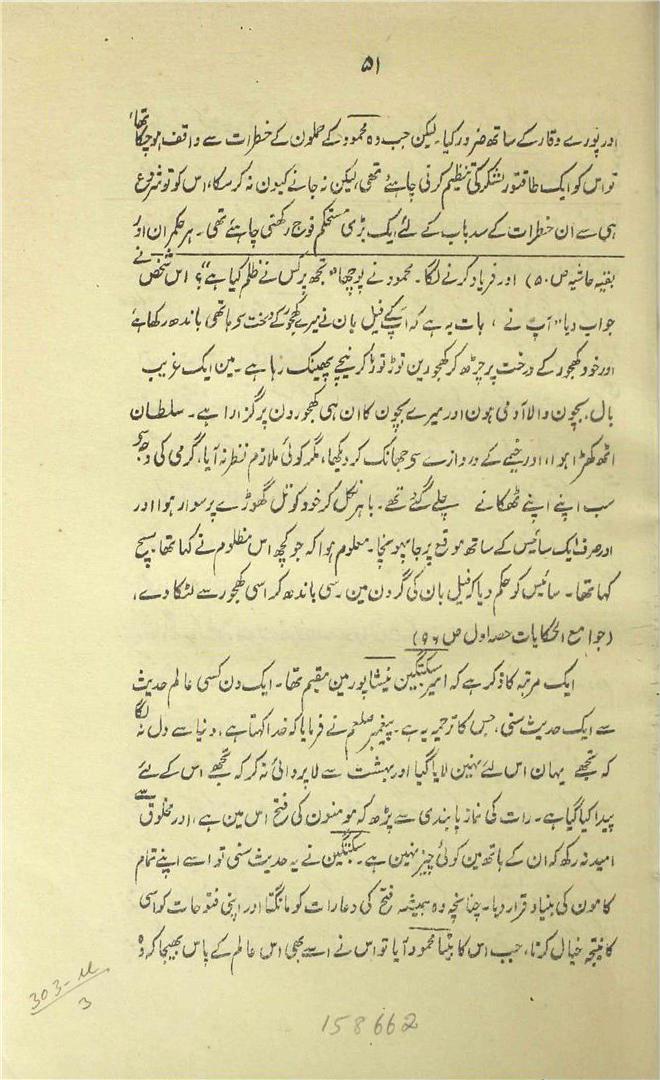 ۵۱
اور پورے وقار کے ساتھ ضرور کیا۔ لیکن جب وہ محمود کے حملون کے خطرات سے واقف ہو چکا تھا،
تو اس کو ایک طاقتور لشکر کی تنظیم کرنی چاہئے تھی، لیکن نہ جانے کیون نہ کر سکا، اس کو تو شروع
ہی سے ان خطرات کے سد باب کے لئے ایک بڑی مستحکم فوج رکھنی چاہئے تھی۔ ہر حکمران اور
بقیہ حاشیہ ص ۵۰) اور فریاد کرنے لگا۔ محمود نے پوچھا "تجھ پر کس نے ظلم کیا ہے"؟ اس شخص نے
جواب دیا "آپ نے ، بات یہ ہے کہ آپ کے فیل بان نے میرے کھجور کے درخت سے ہاتھی باندھ رکھا ہے
اور خود کھجور کے درخت پر چڑھ کر کھجورین توڑ توڑ کر نیچے پھینک رہا ہے۔ مین ایک غریب
بال بچون والا آدمی ہون اور میرے بچون کا ان ہی کھجورون پر گزارا ہے۔ سلطان
اٹھ کھڑا ہوا، اور خیمے کے دروازے سے جھانک کر دیکھا، مگر کوئی ملازم نظر نہ آیا، گرمی کی وجہ سے
سب اپنے اپنے ٹھکانے چلے گئے تھے۔ باہر نکل کر خود کوتل گھوڑے پر سوار ہوا اور
اور صرف ایک سائیس کے ساتھ موقع پر جا پہونچا۔ معلوم ہوا کہ جو کچھ اس مظلوم نے کہا تھا، سچ
کہا تھا۔ سائیس کو حکم دیا کہ فیل بان کی گردن مین رسی باندھ کر اسی کھجور سے لٹکا دے،
(جوامع الحکایات حصہ اول ص ۹۶)
ایک مرتبہ کا ذکر ہے کہ امیر سبکتگین نیشاپور مین مقیم تھا۔ ایک دن کسی عالم حدیث
سے ایک حدیث سنی، جس کا ترجمہ یہ ہے۔ پیغمبر صلعم نے فرمایا کہ خدا کہتا ہے، دنیا سے دل نہ لگا
کہ تجھے یہان اس لئے نہین لایا گیا اور بہشت سے لاپروائی نہ کر کہ تجھے اس کے لئے
پیدا کیا گیا ہے۔ رات کی نماز پابندی سے پڑھ کہ مومنون کی فتح اس مین ہے، اور مخلوق سے
امید نہ رکھ کہ ان کے ہاتھ مین کوئی چیز نہین ہے۔ سبکتگین نے یہ حدیث سنی تو اسے اپنے تمام
کامون کی بنیاد قرار دیا۔ چنانچہ وہ ہمیشہ فتح کی دعا رات کو مانگتا اور اپنی فتوحات کو اسی
کا نتیجہ خیال کرتا، جب اس کا بیٹا محمود آیا تو اس نے اسے بھی اس عالم کے پاس بھیجا کہ وہ
303-
3
158662